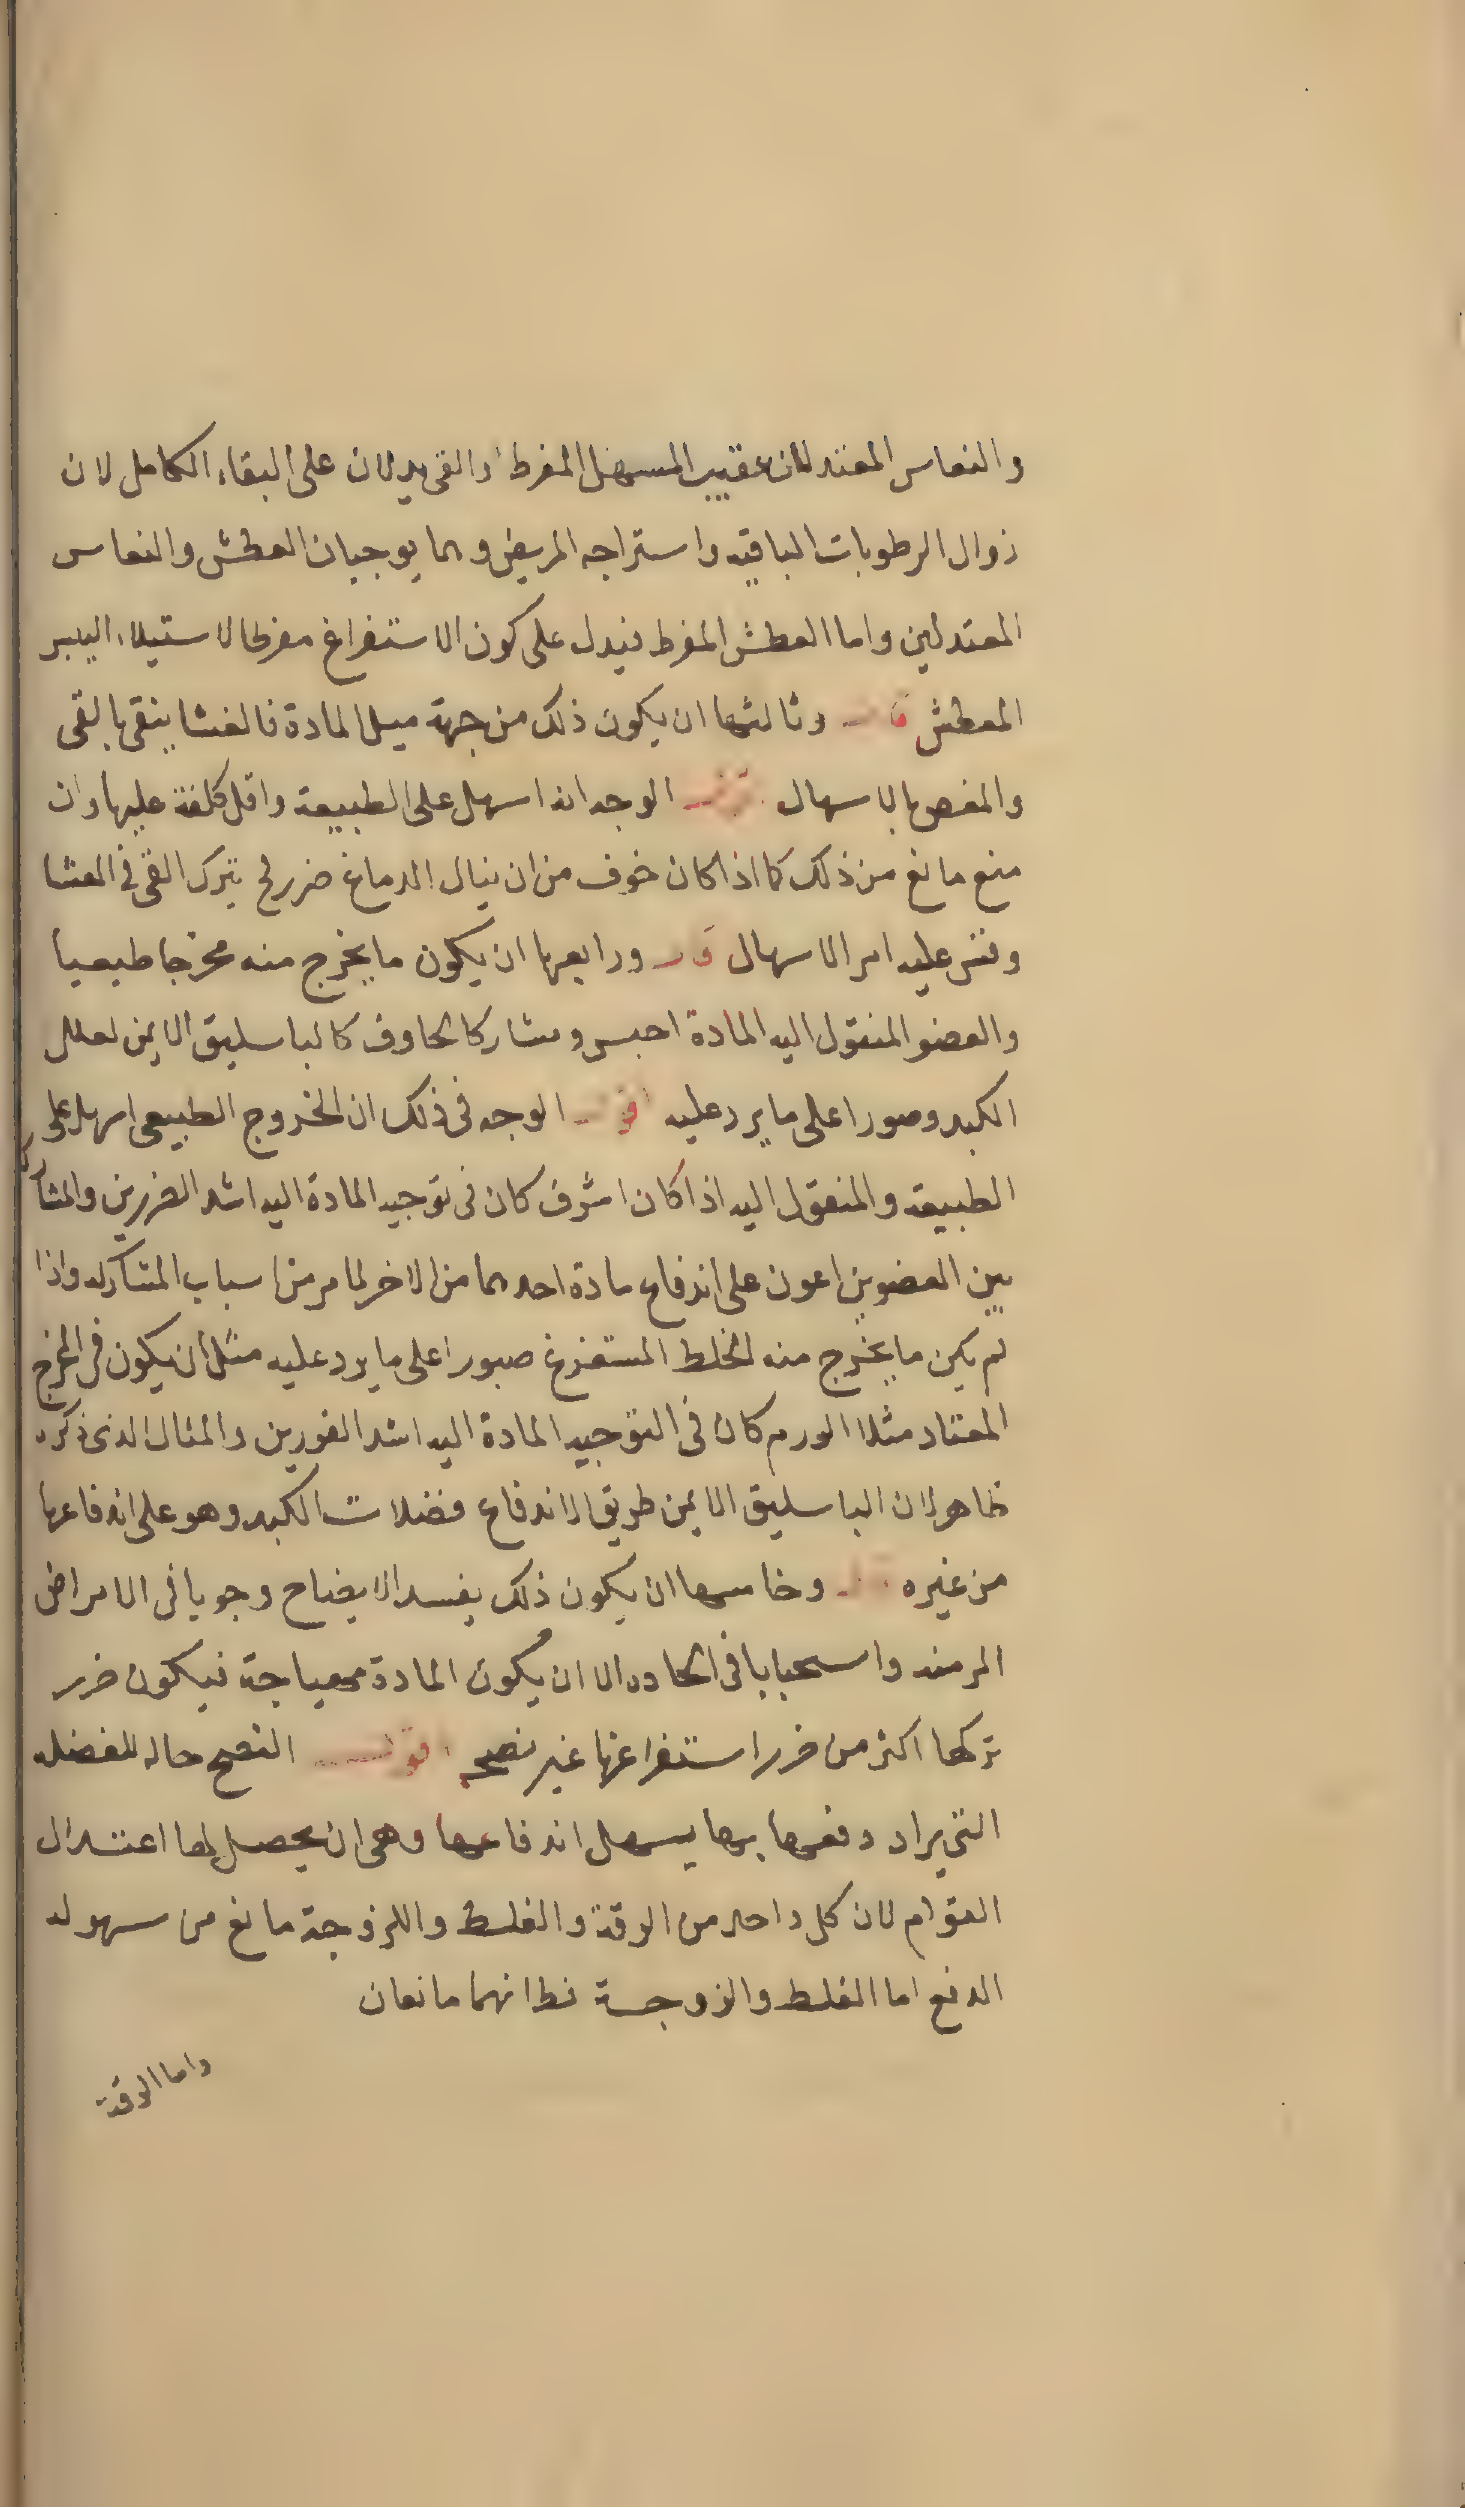 والنعاس المعتدلان عقيب المسهل المفرط او القى يدلان على البقاء الكامل لان
زوال الرطوبات الباقيه واستراجه المريض وهما يوجبان العطش والنعاس
المعتدلين واما العطش المفرط فيدل على كون الاستفراغ مفرطا لاستيلاء اليبس
المعطش قال وثالثها ان يكون ذلك من جهة ميل المادة فالغشا ينقى بالقى
والمغص بالاسهال الوجه انه اسهل على الطبيعة واقل كلفة عليها وان
منع مانع من ذلك كما اذا كان خوف من ان ينال الدماغ ضرر لم يترك القى فى الغشا
وقس عليه امر الاسهال قال ورابعها ان يكون ما يخرج منه مخرجا طبيعيا
والعضو المنقول اليه المادة احبس ومشاركا لحاوف كالباسليق الايمن لعلل
الكبد وصورا على ما يرد عليه اقول الوجه فى ذلك ان الخروج الطبيعى اسهل على
الطبيعة والمنقول اليه اذا كان اشرف كان فى توجيه المادة اليه اشد الضررين والمشاركة
بين العضوين اعون على اندفاع مادة احدهما من الاخر لما مر من اسباب المشاركه واذا
لم يكن ما يخرج منه الخلط المستفرغ صبورا على ما يرد عليه مثل ان يكون فى المخرج
المعتاد مثلا الورم كان فى التوجيه المادة اليه اشد الضررين والمثال الذى ذكره
ظاهر لان الباسليق الايمن طريق لاندفاع فضلات الكبد وهو على اندفاعها
من غيره قال وخامسها ان يكون ذلك بفسد الايضاح وجوبا فى الامراض
المزمنه واستحبابا فى الحاده الا ان يكون المادة مهياجة فيكون ضرر
تركها اكثر من ضرر استفراغها غير نضجه اقول النضج حاله للفضله
التى يراد دفعها بها يسهل اندفاعها وهى ان يحصل لها اعتدال
القوام لان كل واحد من الرقة والغلظ واللزوجة مانع من سهوله
الدفع اما الغلظ والزوجة فظ انهما مانعان
واما الرقة